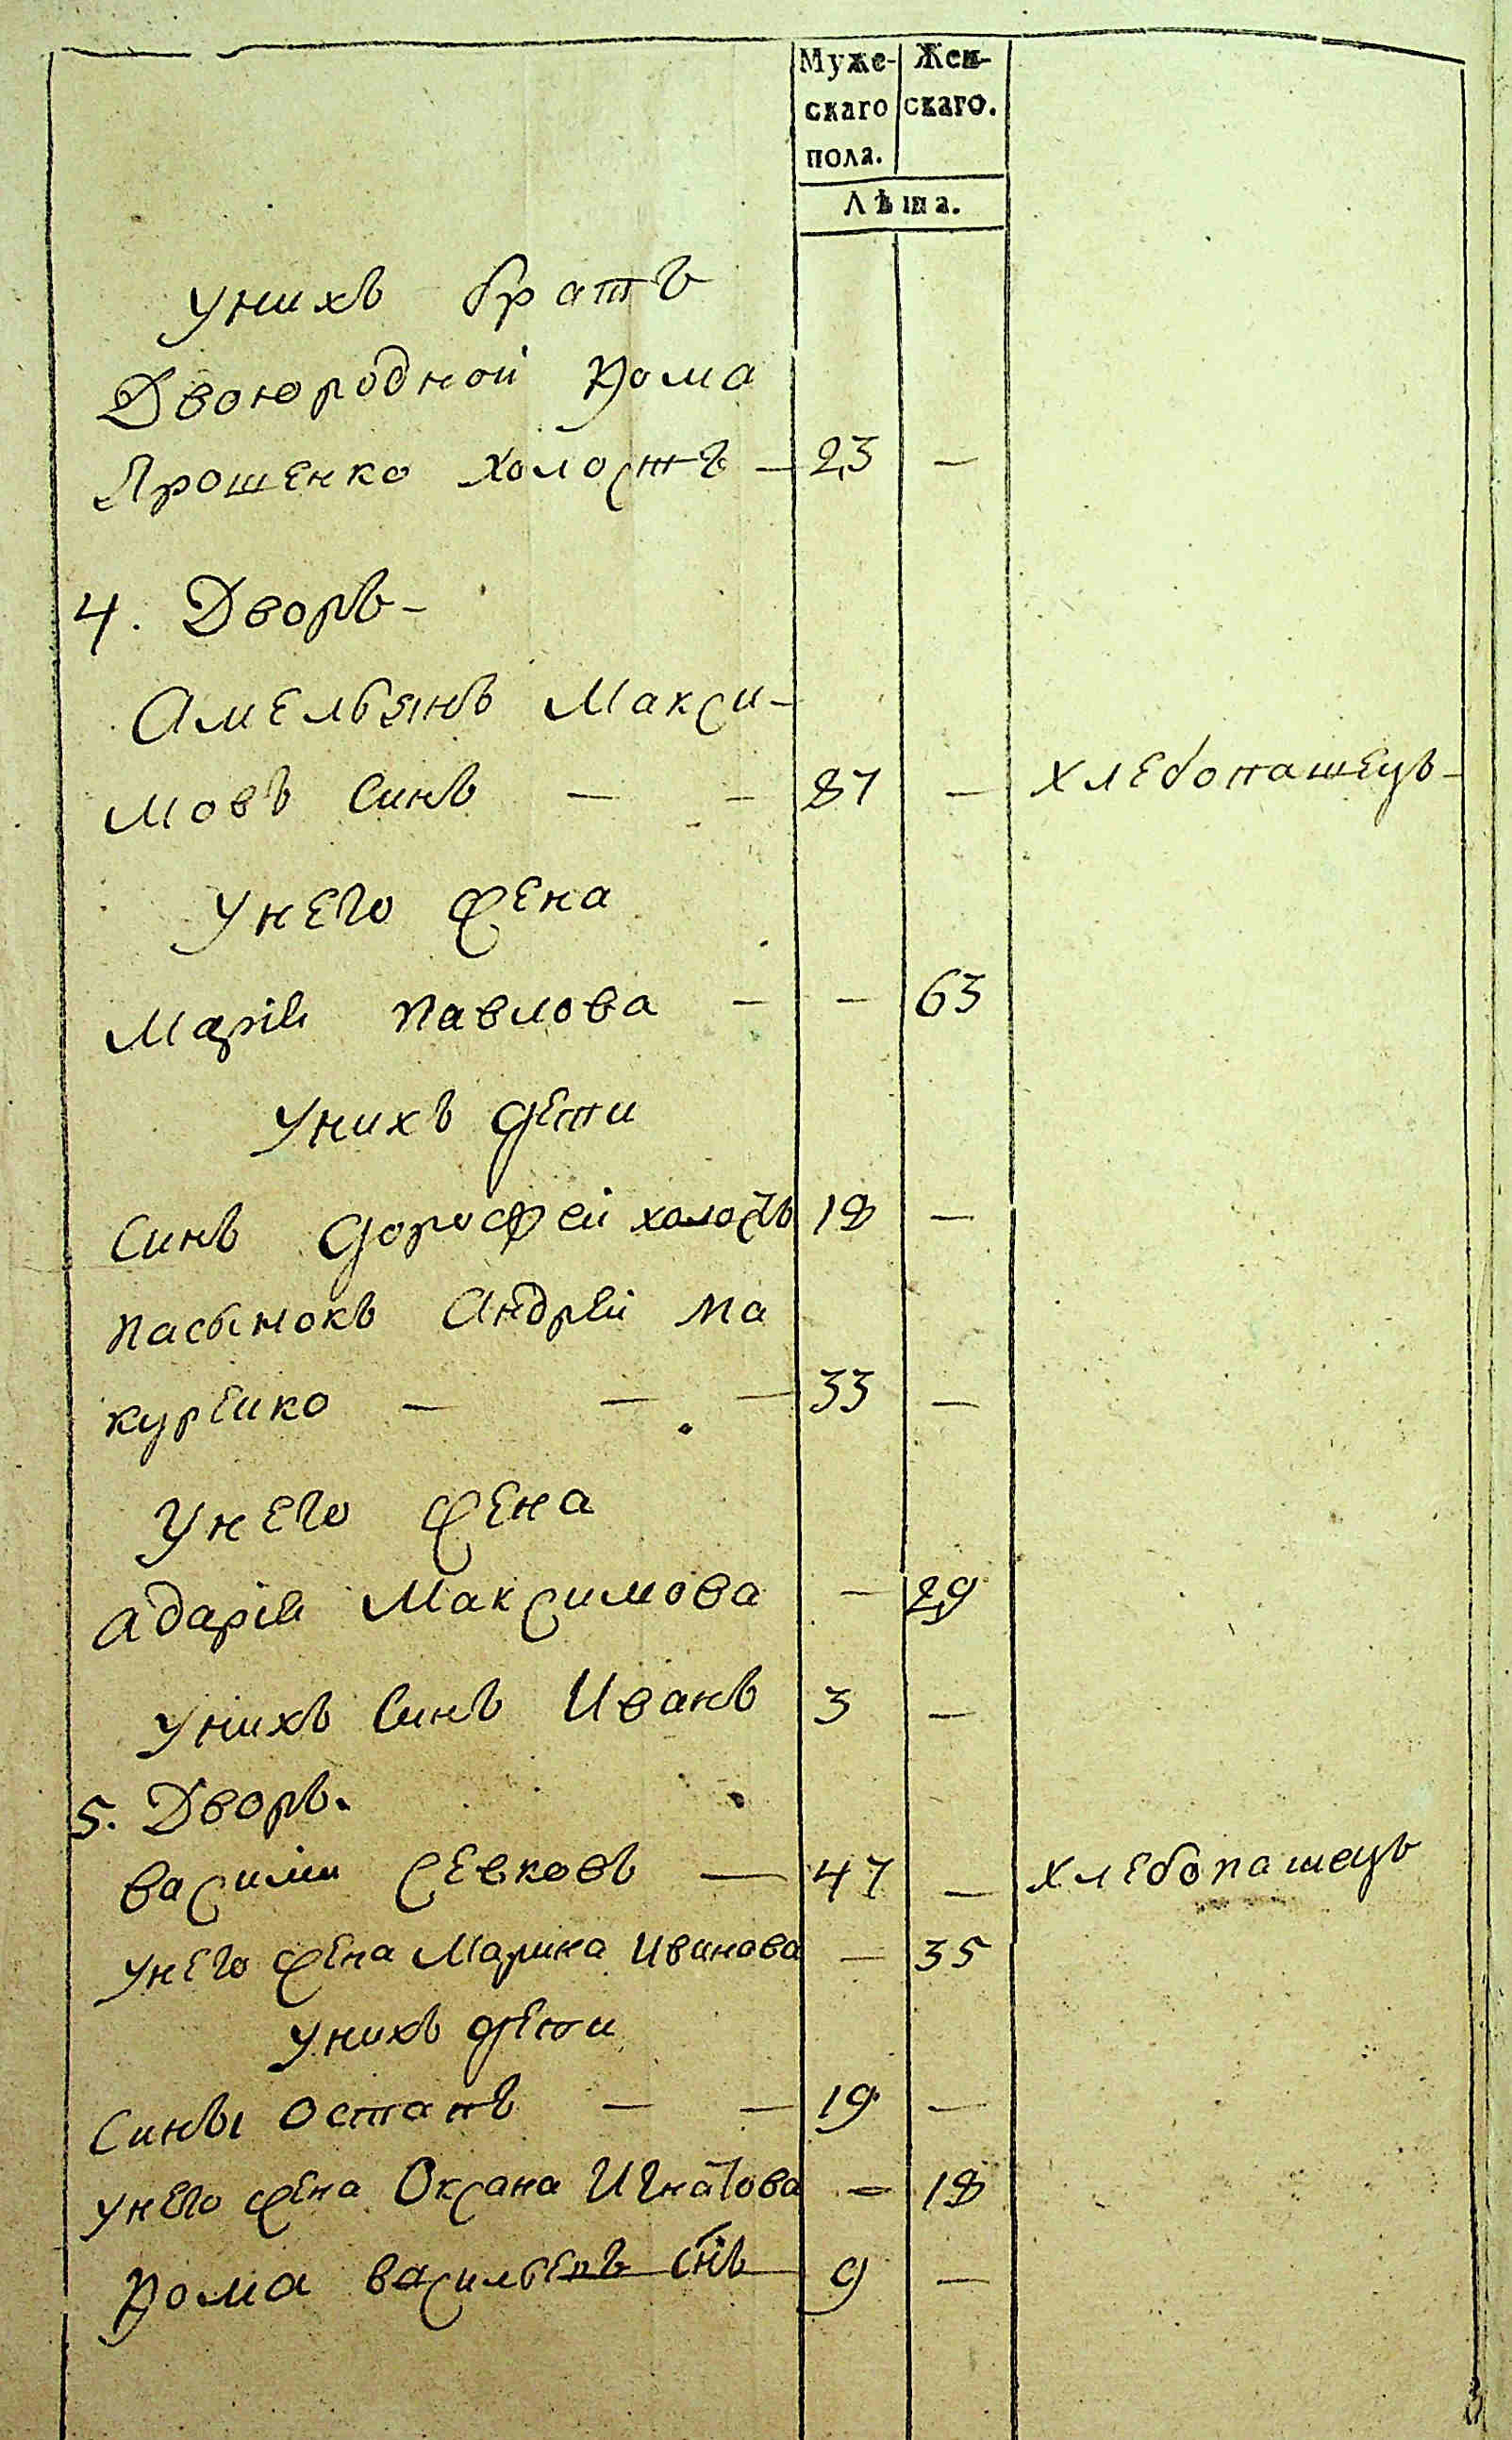 Муже- Жен-
скаго скаго.
пола.
Лѣта.
Унихъ братъ
Двоюродной Хома
Ярошенко холостъ — 23 —
4. Дворъ-
Амельянъ Макси-
мовъ Синъ — — 87 — хлебопашецъ-
Унего жена
Марія Павлова — — 63
Унихъ дети
Синъ Дорофей холостъ 18 —
пасынокъ Андрей Ма
куренко — — — 33 —
Унего жена
Адарія Максимова — 29
Унихъ Синъ Иванъ 3 —
5. Дворъ.
Василий Севковъ — 47 — хлебопашецъ
Унего жена Марина Иванова — 35
Унихъ дети
Сины Остапъ — — 19 —
Унего жена Оксана Игнатова — 18
Хома Васильевъ Снъ 9 —